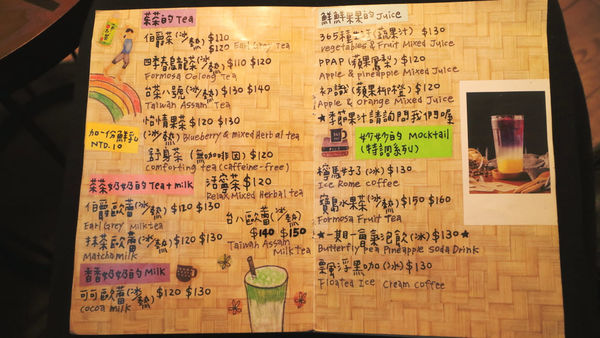 茶茶的 Tea
伯爵茶(冰/熱) $110 $120
Earl Grey Tea
四季春烏龍茶(冰/熱) $110 $120
Formosa Oolong Tea
台茶八號(冰/熱) $130 $140
Taiwan Assam Tea
怡情果茶 $120
(冰/熱) $130
Blueberry & mixed Herbal tea
舒身茶 (無咖啡因) $120
comforting tea (caffeine-free)
活寧茶 $120
Relax Mixed Herbal tea
加一份鮮乳
NTD.10
茶茶奶奶的 Tea + milk
伯爵歐蕾(冰/熱) $120 $130
Earl Grey Milk tea
抹茶歐蕾(冰/熱) $120 $130
Matcha milk
台八歐蕾(冰/熱)
$140 $150
Taiwan Assam
Milk tea
香香奶奶的 Milk
可可歐蕾(冰/熱) $120 $130
cocoa milk
鮮鮮果果的 Juice
365種生活(蔬果汁) $130
vegetables & Fruit Mixed Juice
PPAP (蘋果鳳梨) $120
Apple & pineapple Mixed Juice
初識 (蘋果柳橙) $120
Apple & Orange Mixed Juice
★季節果汁請詢問我們喔
妙妙的 Mocktail
(特調系列)
檸馬好了(冰) $130
Ice Rome coffee
寶島水果茶(冰/熱) $150 $160
Formosa Fruit Tea
★一期一會氣泡飲(冰) $130★
Butterfly pea Pineapple Soda Drink
飄浮黑咖(冰) $130
Floated Ice Cream coffee